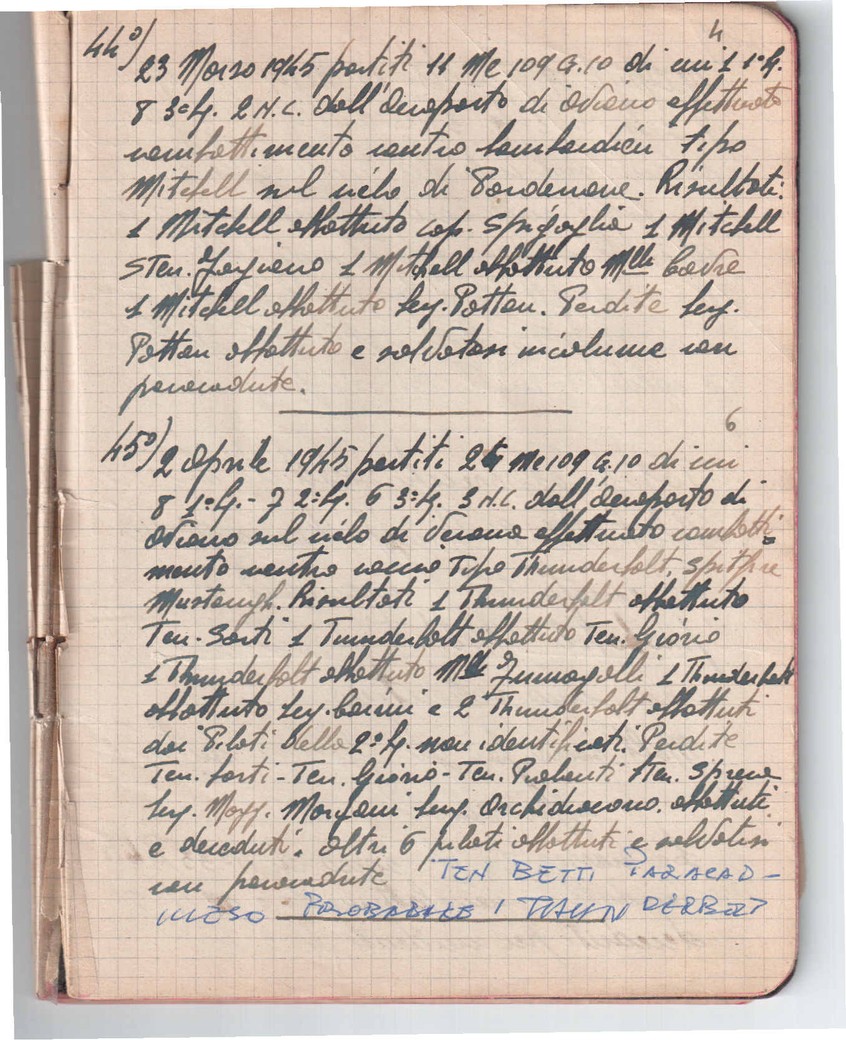 4
44°)
23 Marzo 1945 partiti 11 Me 109 G.10 di cui 1 1ª G.
8 3ª G. 2 N.C. dall'aeroporto di Aviano effettuato
combattimento contro bombardieri tipo
Mitchell sul cielo di Pordenone. Risultati:
1 Mitchell abbattuto cap. Spigaglia 1 Mitchell
STen. 1 Mitchell abbattuto Mllo
1 Mitchell abbattuto Serg. Patton. Perdite Serg.
Patton abbattuto e salvatosi incolume con
paracadute.
6
45°)
2 Aprile 1945 partiti 24 Me 109 G.10 di cui
8 1ª G.- 7 2ª G. 6 3ª G. 3 N.C. dall'aeroporto di
Aviano sul cielo di Verona effettuato combatti-
mento contro caccia Tipo Thunderbolt, Spitfire
Mustangh. Risultati 1 Thunderbolt abbattuto
Ten. Sarti 1 Tunderbolt abbattuto Ten. Giorio
1 Thunderbolt abbattuto Mllo Fumagalli 1 Thunderbolt
abbattuto Serg. Carini e 2 Thunderbolt abbattuti
dai Piloti della 2ª G. non identificati. Perdite
Ten. Sarti - Ten. Giorio - Ten. STen. Spreca
Serg. Magg. Margoni Serg. Archidiacono. abbattuti
e deceduti. Altri 6 piloti abbattuti e salvatisi
con paracadute TEN BETTI PARACAD-
PROBABILE 1